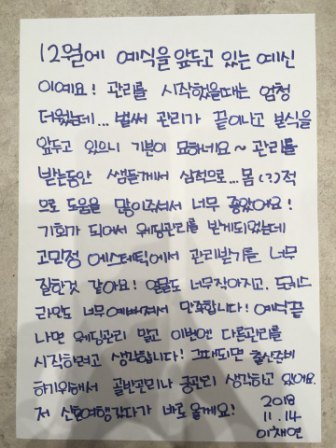 12월에 예식을 앞두고 있는 예신
이예요! 관리를 시작했을때는 엄청
더웠는데... 벌써 관리가 끝이나고 본식을
앞두고 있으니 기분이 묘하네요~ 관리를
받는동안 쌤들께서 심적으로... 몸(?)적
으로 도움을 많이주셔서 너무 좋았어요!
기회가 되어서 웨딩관리를 받게되었는데
고민정 에스테틱에서 관리받기를 너무
잘한것 같아요! 얼굴도 너무작아지고, 드레스
라인도 너무예뻐져서 만족합니다! 예식끝
나면 웨딩관리 말고 이번엔 다른관리를
시작하려고 생각합니다! 그때되면 출산준비
하기위해서 골반관리나 궁관리 생각하고 있어요.
저 신혼여행갔다가 바로올게요! 2018
11.14
이채연